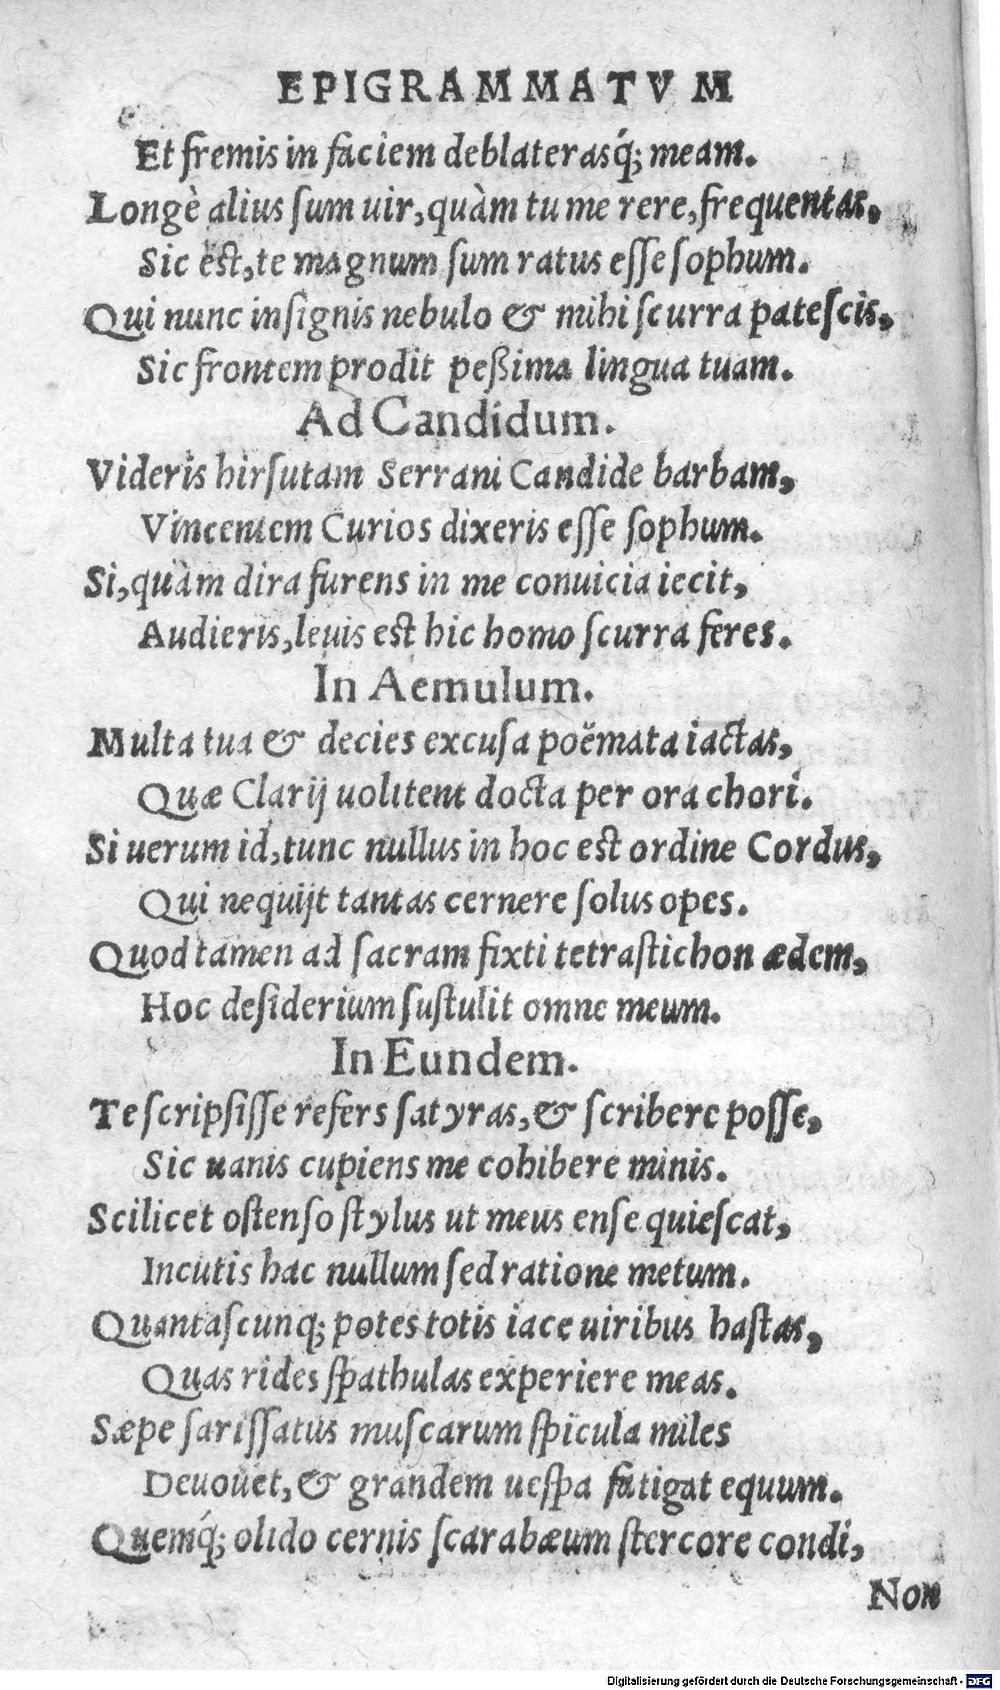 EPIGRAMMATVM
Et fremis in faciem deblaterasq́; meam.
Longè alius ſum uir, quàm tu me rere, frequentas,
Sic est, te magnum ſum ratus eſſe ſophum.
Qui nunc inſignis nebulo & mihi ſcurra pateſcis,
Sic frontem prodit peßima lingua tuam.
Ad Candidum.
Videris hirſutam Serrani Candide barbam,
Vincentem Curios dixeris eſſe ſophum.
Si, quàm dira furens in me conuicia iecit,
Audieris, leuis est hic homo ſcurra feres.
In Aemulum.
Multa tua & decies excuſa poëmata iactas,
Quæ Clarij uolitent docta per ora chori.
Si uerum id, tunc nullus in hoc est ordine Cordus,
Qui nequijt tantas cernere ſolus opes.
Quod tamen ad ſacram fixti tetraſtichon ædem,
Hoc deſiderium ſuſtulit omne meum.
In Eundem.
Te ſcripſiſſe refers ſatyras, & ſcribere poſſe,
Sic uanis cupiens me cohibere minis.
Scilicet oſtenſo ſtylus ut meus enſe quieſcat,
Incutis hac nullum ſed ratione metum.
Quantaſcunq; potes totis iace uiribus haſtas,
Quas rides ſpathulas experiere meas.
Sæpe ſariſſatus muſcarum ſpicula miles
Deuouet, & grandem ueſpa fatigat equum.
Quemq́; olido cernis ſcarabæum ſtercore condi,
Non
Digitalisierung gefördert durch die Deutsche Forschungsgemeinschaft - DFG